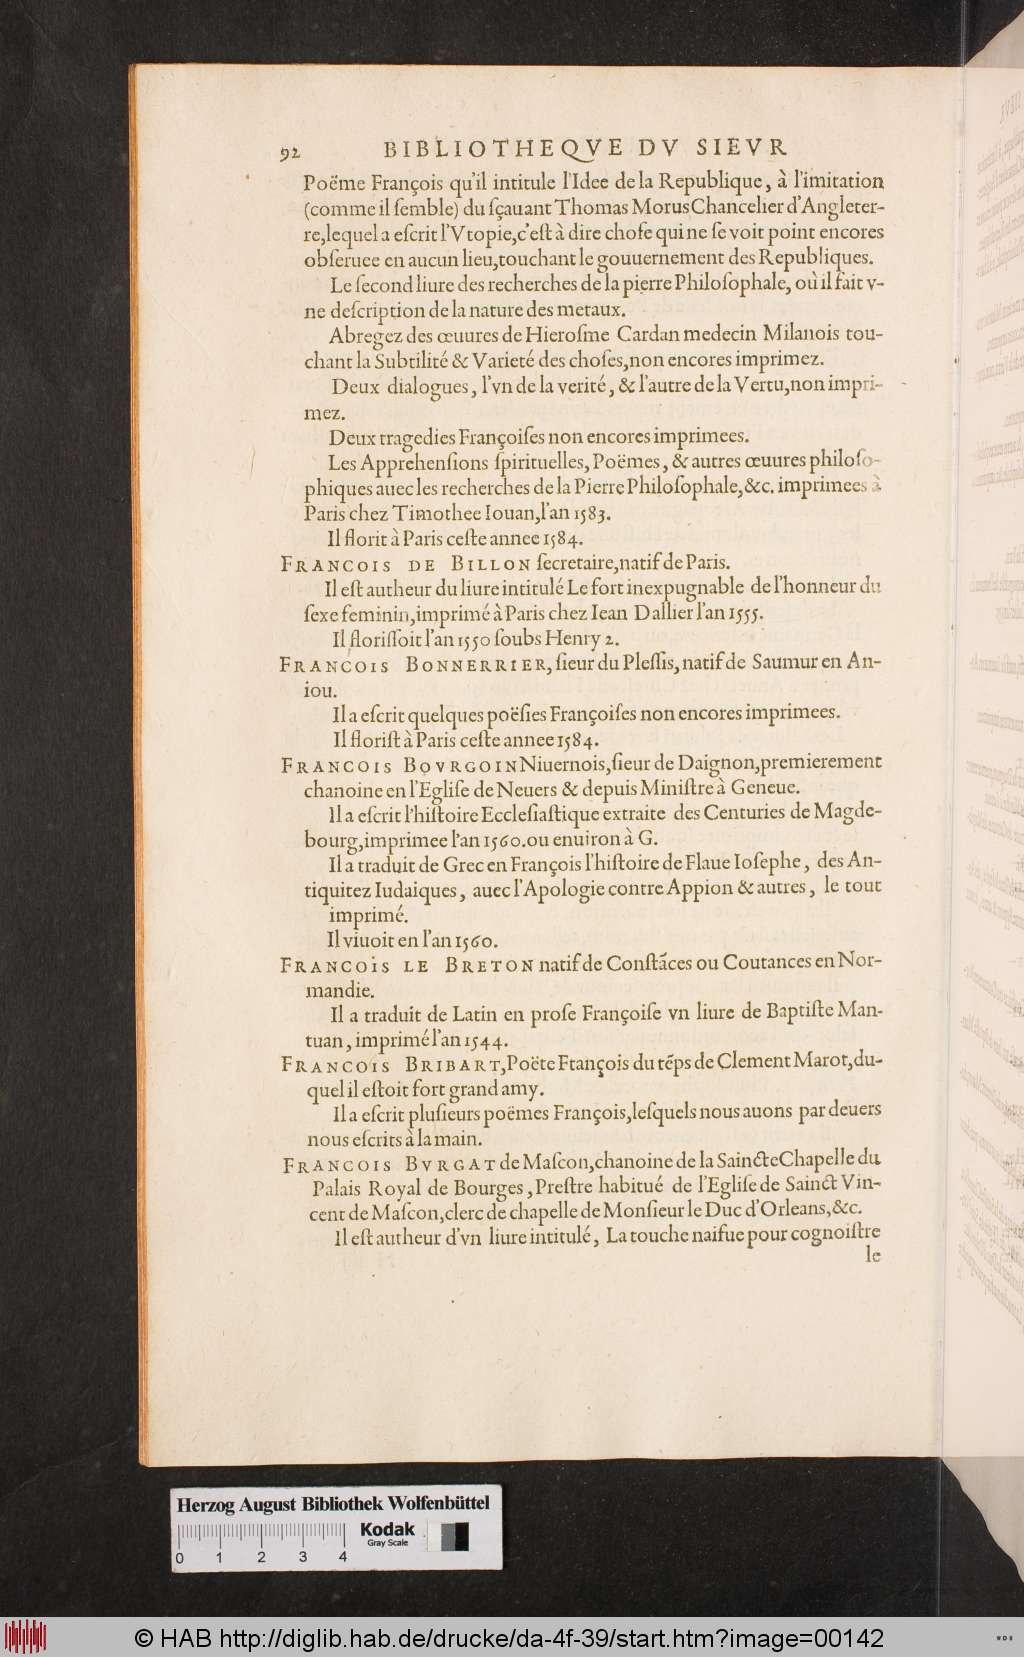 92 BIBLIOTHEQVE DV SIEVR
Poëme François qu'il intitule l'Idee de la Republique, à l'imitation
(comme il ſemble) du ſçauant Thomas Morus Chancelier d'Angleter-
re, lequel a eſcrit l'Vtopie, c'eſt à dire choſe qui ne ſe voit point encores
obſeruee en aucun lieu, touchant le gouuernement des Republiques.
Le ſecond liure des recherches de la pierre Philoſophale, où il fait v-
ne deſcription de la nature des metaux.
Abregez des œuures de Hieroſme Cardan medecin Milanois tou-
chant la Subtilité & Varieté des choſes, non encores imprimez.
Deux dialogues, l'vn de la verité, & l'autre de la Vertu, non impri-
mez.
Deux tragedies Françoiſes non encores imprimees.
Les Apprehenſions ſpirituelles, Poëmes, & autres œuures philoſo-
phiques auec les recherches de la Pierre Philoſophale, &c. imprimees à
Paris chez Timothee Iouan, l'an 1583.
Il florit à Paris ceſte annee 1584.
FRANCOIS DE BILLON ſecretaire, natif de Paris.
Il eſt autheur du liure intitulé Le fort inexpugnable de l'honneur du
ſexe feminin, imprimé à Paris chez Iean Dallier l'an 1555.
Il floriſſoit l'an 1550 ſoubs Henry 2.
FRANCOIS BONNERRIER, ſieur du Pleſſis, natif de Saumur en An-
iou.
Il a eſcrit quelques poëſies Françoiſes non encores imprimees.
Il floriſt à Paris ceſte annee 1584.
FRANCOIS BOVRGOIN Niuernois, ſieur de Daignon, premierement
chanoine en l'Egliſe de Neuers & depuis Miniſtre à Geneue.
Il a eſcrit l'hiſtoire Eccleſiaſtique extraite des Centuries de Magde-
bourg, imprimee l'an 1560. ou enuiron à G.
Il a traduit de Grec en François l'hiſtoire de Flaue Ioſephe, des An-
tiquitez Iudaiques, auec l'Apologie contre Appion & autres, le tout
imprimé.
Il viuoit en l'an 1560.
FRANCOIS LE BRETON natif de Conſtãces ou Coutances en Nor-
mandie.
Il a traduit de Latin en proſe Françoiſe vn liure de Baptiſte Man-
tuan, imprimé l'an 1544.
FRANCOIS BRIBART, Poëte Ftançois du tẽps de Clement Marot, du-
quel il eſtoit fort grand amy.
Il a eſcrit pluſieurs poëmes François, leſquels nous auons par deuers
nous eſcrits à la main.
FRANCOIS BVRGAT de Maſcon, chanoine de la Saincte Chapelle du
Palais Royal de Bourges, Preſtre habitué de l'Egliſe de Sainct Vin-
cent de Maſcon, clerc de chapelle de Monſieur le Duc d'Orleans, &c.
Il eſt autheur d'vn liure intitulé, La touche naifue pour cognoiſtre
le
Herzog August Bibliothek Wolfenbüttel
Kodak
Gray Scale
0 1 2 3 4
© HAB http://diglib.hab.de/drucke/da-4f-39/start.htm?image=00142